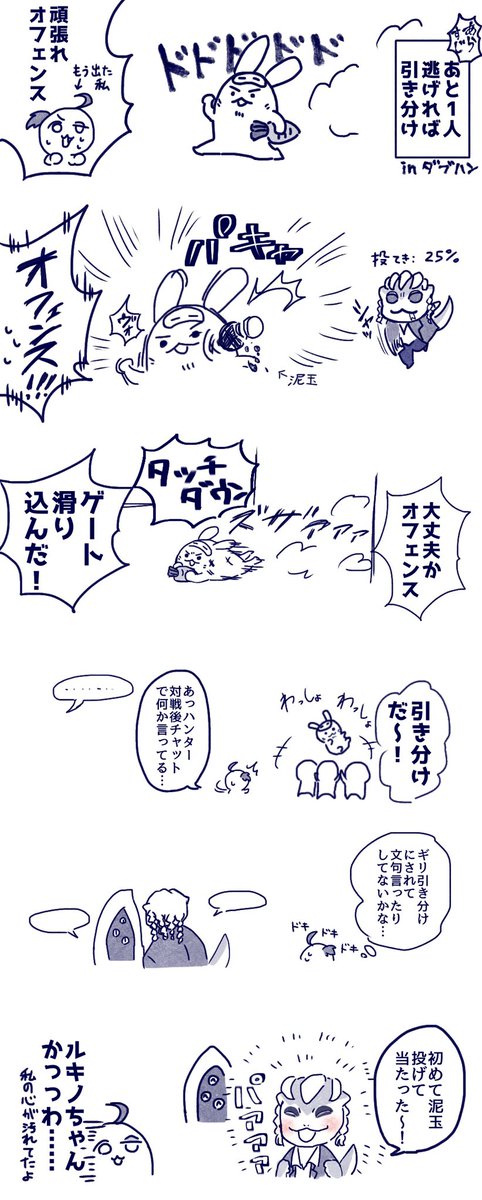 あらすじ
あと1人
逃げれば
引き分け
in ダブハン
ドドドドド
頑張れ
オフェンス
もう出た
私
投てき：25%
バキャ
←泥玉
オフェンス!!!
大丈夫か
オフェンス
ズザザァァァァ
タッチ
ダウン
ゲート
滑り
込んだ！
引き分け
だ〜！
わっしょ
わっしょ
あっハンター
対戦後チャット
で何か言ってる…
……
ギリ引き分け
にされて
文句言ったり
してないかな…
ドキ
ドキ
ドキ
初めて泥玉
投げて
当たった〜！
パァァァ
ルキノちゃん
かっっわ……
私の心が汚れてたよ